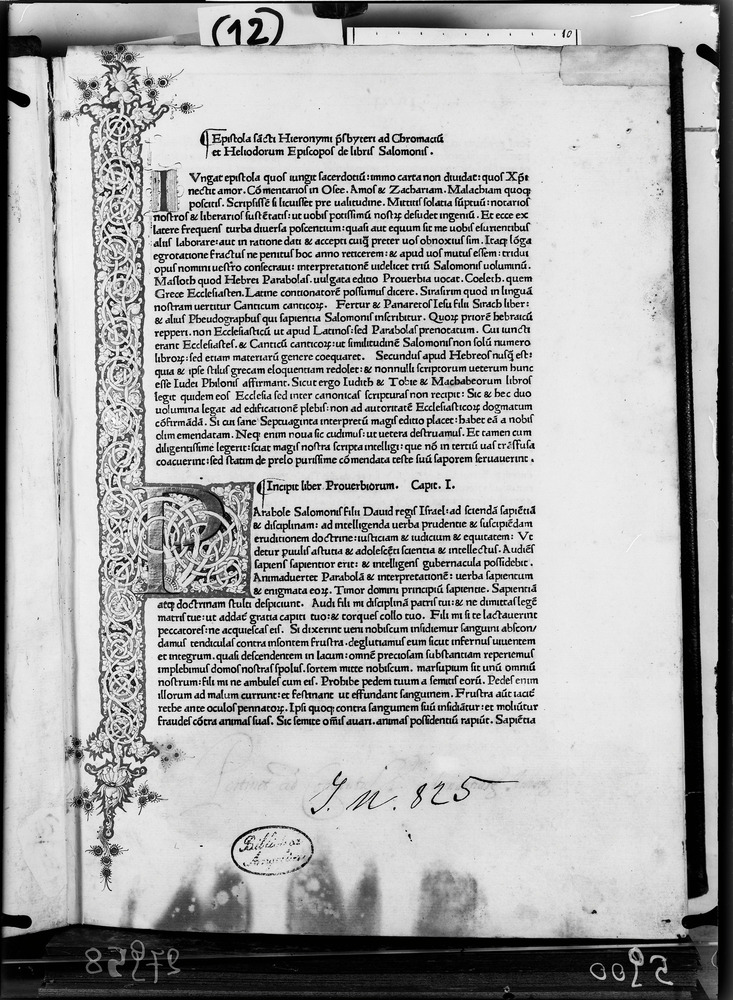 (12)
10
Epistola sācti Hieronymi p̄sbyteri ad Chromaciū
et Heliodorum Episcopos de libris Salomonis.
IVngat epistola quos iungit sacerdotiū: immo carta non diuidat: quos Xp̄i
nectit amor. Cōmentarios in Osee. Amos & Zachariam. Malachiam quoqꝫ
poscitis. Scripsissē si licuisset pre ualitudine. Mittitis solatia sūptuū: notarios
nostros & librarios sustētatis: ut uobis potissimū nostꝝ desudet ingeniū. Et ecce ex
latere frequens turba diuersa poscentium: quasi aut equum sit me uobis esurientibus
aliis laborare: aut in ratione dati & accepti cuiqꝫ preter uos obnoxius sim. Itaqꝫ lōga
egrotatione fractus ne penitus hoc anno reticerem: & apud uos mutus essem: tridui
opus nomini uestro consecraui: interpretationē uidelicet triū Salomonis uoluminū.
Masloth quod Hebrei Parabolas. uulgata editio Prouerbia uocat. Coeleth. quem
Grece Ecclesiasten. Latine contionatorē possumus dicere. Sirasirim quod in linguā
nostram uertitur Canticum canticoꝝ. Fertur & Panaretos Iesu filii Sirach liber:
& alius Pseudographus qui sapientia Salomonis inscribitur. Quoꝝ priorē hebraicū
repperi. non Ecclesiasticū ut apud Latinos: sed Parabolas prenotatum. Cui iuncti
erant Ecclesiastes. & Canticū canticoꝝ: ut similitudinē Salomonis non solū numero
libroꝝ: sed etiam materiarū genere coequaret. Secundus apud Hebreos nusqꝫ est:
quia & ipse stilus grecam eloquentiam redolet: & nonnulli scriptorum ueterum hunc
esse Iudei Philonis affirmant. Sicut ergo Iudith & Tobie & Machabeorum libros
legit quidem eos Ecclesia sed inter canonicas scripturas non recipit: Sic & hec duo
uolumina legat ad edificationē plebis: non ad auctoritatē Ecclesiasticoꝝ dogmatum
cōfirmādā. Si cui sane Septuaginta interpretū magis editio placet: habet eā a nobis
olim emendatam. Neqꝫ enim noua sic cudimus: ut uetera destruamus. Et tamen cum
diligentissime legerit: sciat magis nostra scripta intelligi: que nō in tertiū uas trāsfusa
coacuerint: sed statim de prelo purissime cōmendata teste suū saporem seruauerint.
Incipit liber Prouerbiorum. Capit. I.
PArabole Salomonis filii Dauid regis Israel: ad sciendā sapiētiā
& disciplinam: ad intelligenda uerba prudentie & suscipiēdam
eruditionem doctrine: iusticiam & iudicium & equitatem: Vt
detur puulis astutia & adolescēti scientia & intellectus. Audiēs
sapiens sapientior erit: & intelligens gubernacula possidebit.
Animaduertet Parabolā & interpretationē: uerba sapientum
& enigmata eoꝝ. Timor domini principiū sapientie. Sapientiā
atqꝫ doctrinam stulti despiciunt. Audi fili mi disciplinā patris tui: & ne dimittas legē
matris tue: ut addat̄ gratia capiti tuo: & torques collo tuo. Fili mi si te lactauerint
peccatores: ne acquiescas eis. Si dixerint ueni nobiscum insidiemur sanguini abscon/
damus tendiculas contra insontem frustra. deglutiamus eum sicut infernus uiuentem
et integrum. quasi descendentem in lacum: omnē preciosam substantiam reperiemus
implebimus domos nostras spoliis. sortem mitte nobiscum. marsupium sit unū omniū
nostrum: fili mi ne ambules cum eis. Prohibe pedem tuum a semitis eorū. Pedes enim
illorum ad malum currunt: et festinant ut effundant sanguinem. Frustra aūt iacit̄
rethe ante oculos pennatoꝝ. Ipsi quoqꝫ contra sanguinem suū insidiātur: et moliūtur
fraudes cōtra animas suas. Sic semite oīs auari. animas possidentiū rapiūt. Sapiētia
I. N. 825
Bibliothecae
Angelicae
27958
5900